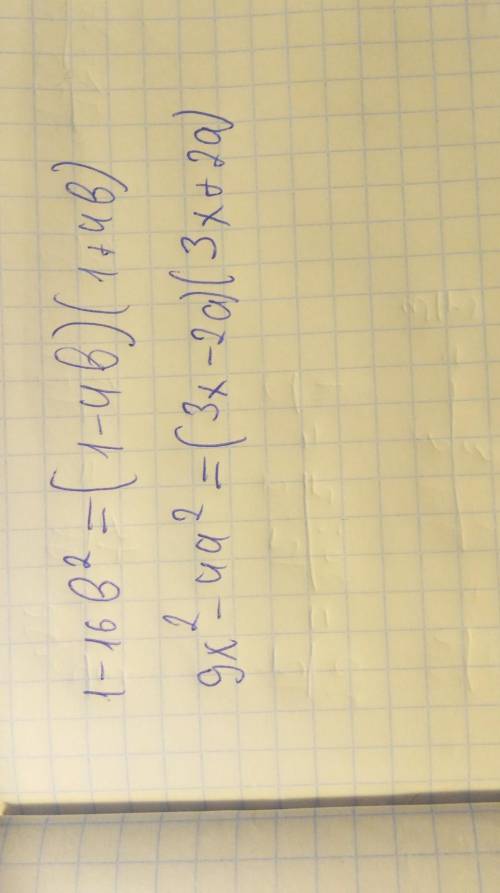 1-16b²=(1-4b)(1+4b)
9x²-4a²=(3x-2a)(3x+2a)